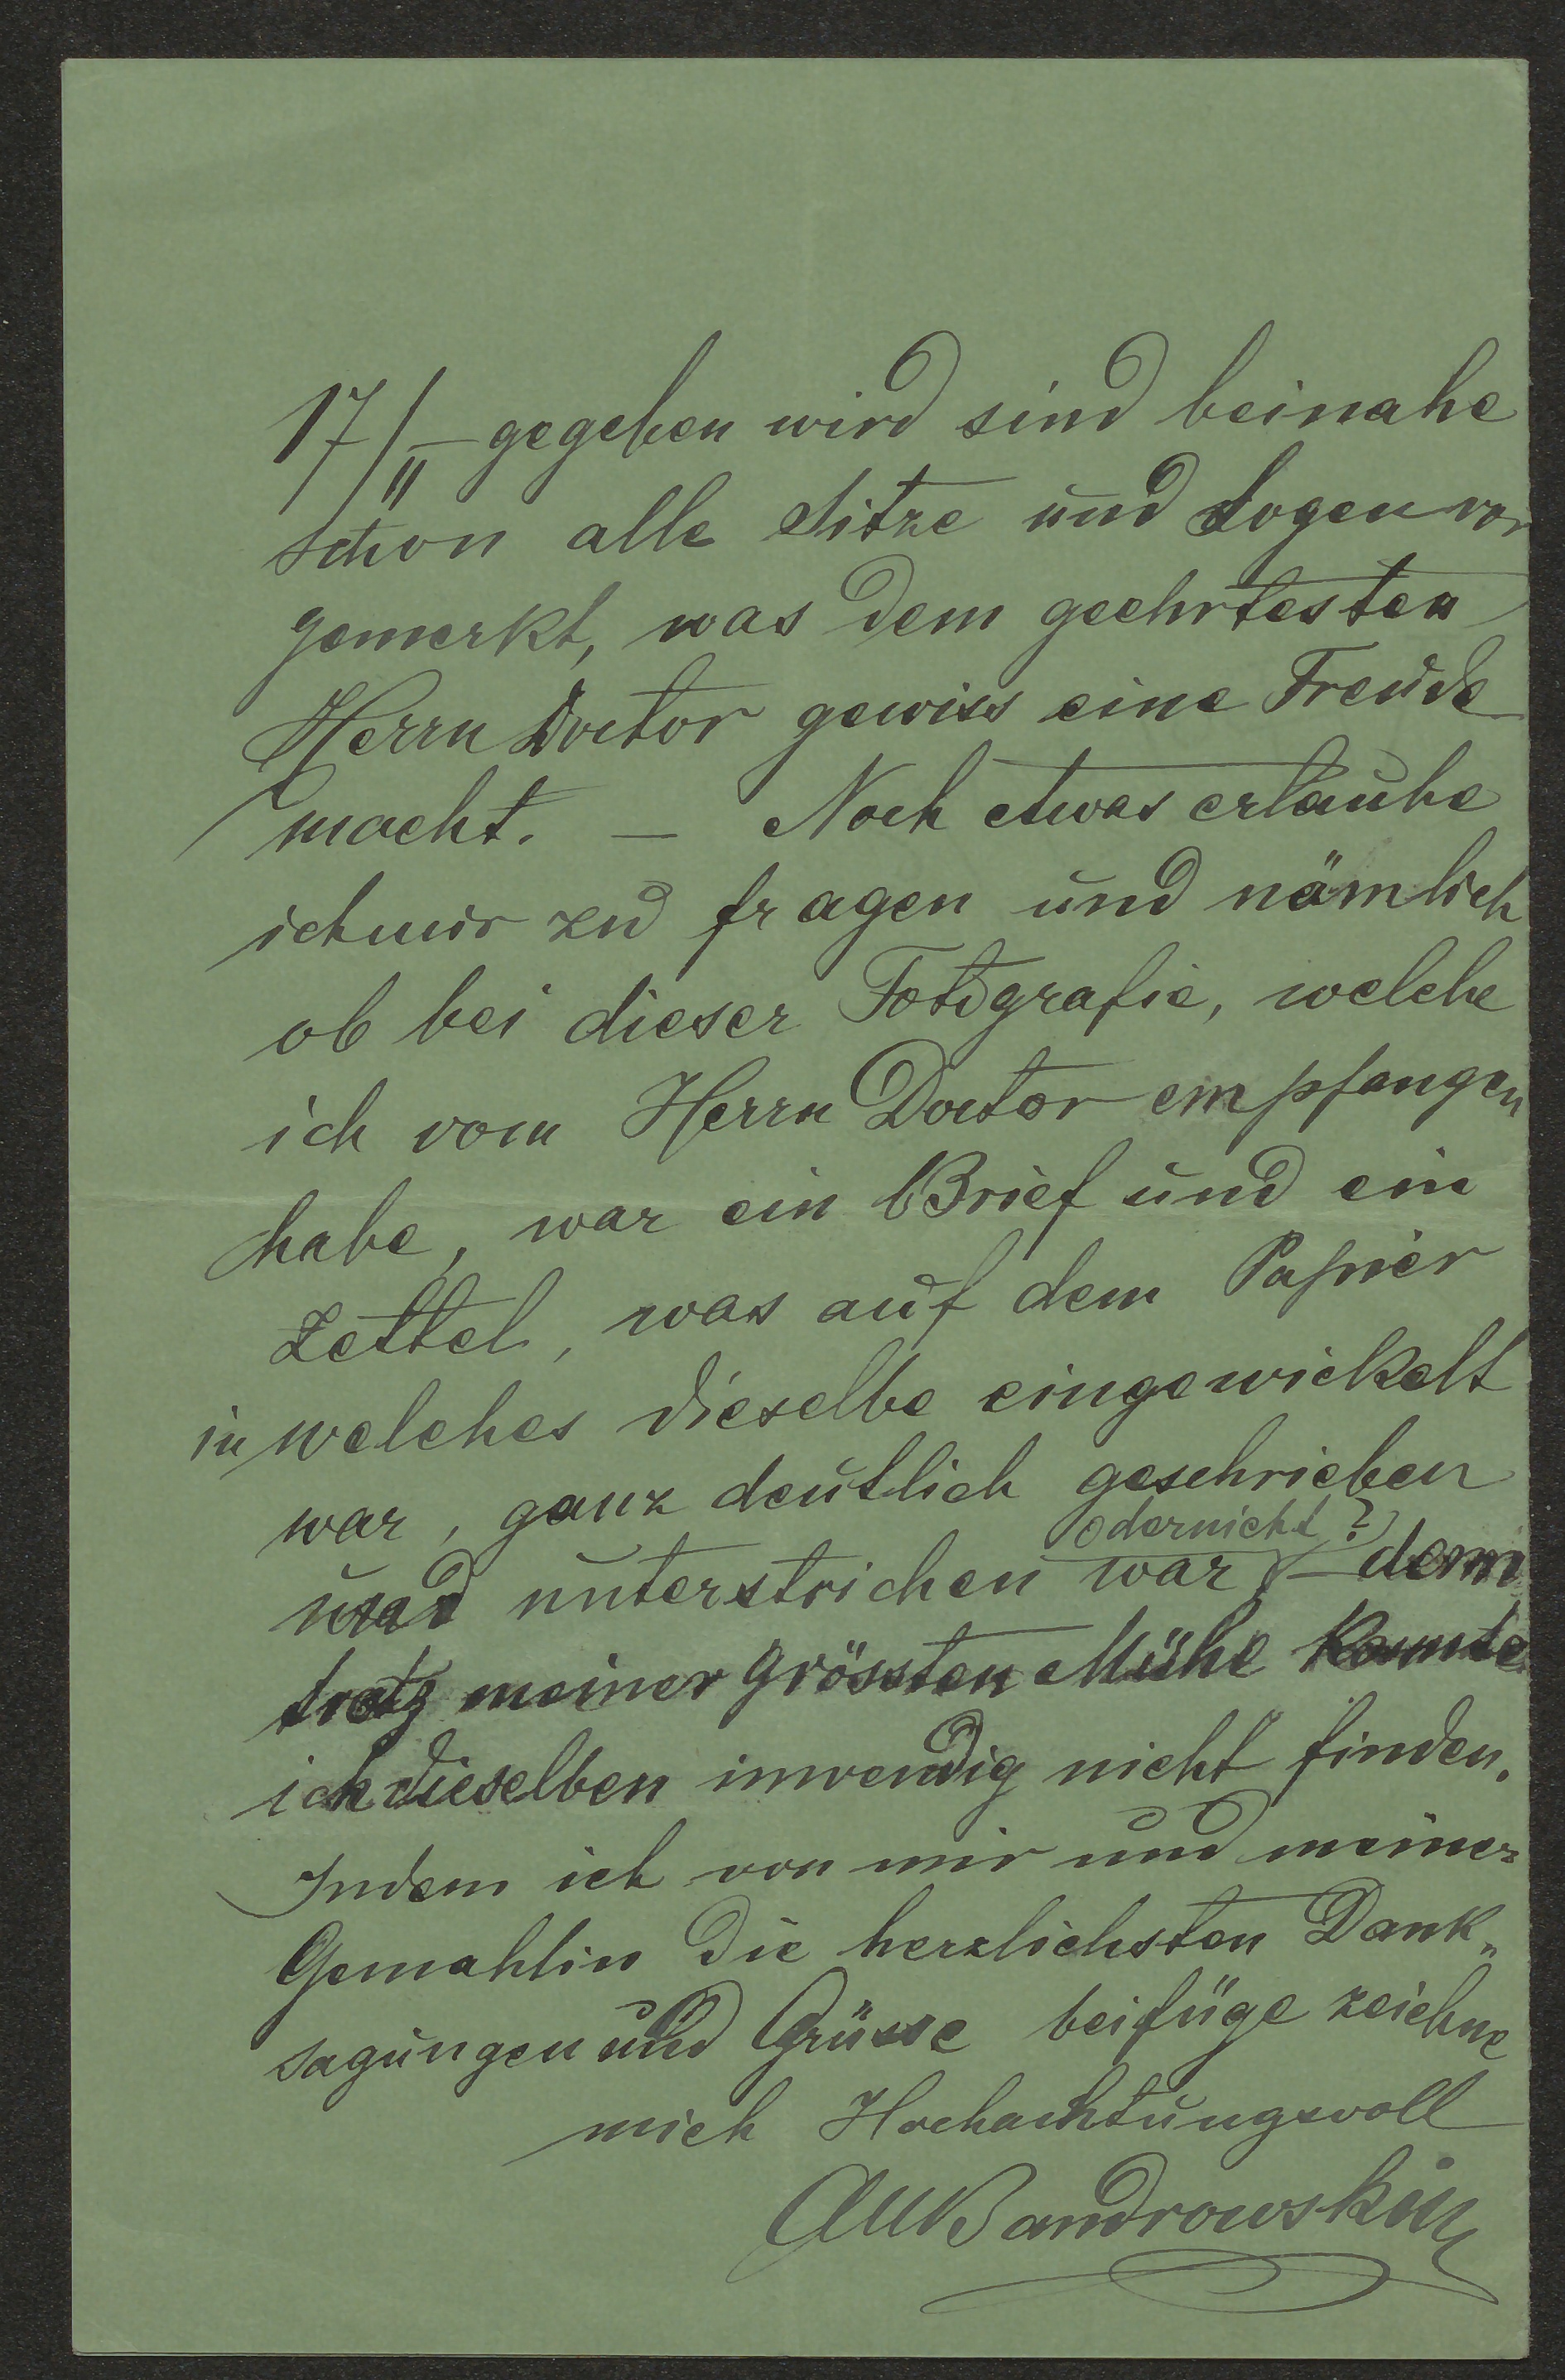 17/II gegeben wird sind beinahe
schon alle Sitze und Logen vor
gemerkt, was dem geehrtesten
Herrn Doctor gewiss eine Freude
macht. — Noch etwas erlaube
ich mir zu fragen und nämlich
ob bei dieser Fotografie, welche
ich vom Herrn Doctor empfangen
habe, war ein Brief und ein
Zettel, was auf dem Papier
in welches dieselbe eingewickelt
war, ganz deutlich geschrieben
oder nicht?
und unterstrichen war — denn
trotz meiner grössten Mühe konnte
ich dieselben inwendig nicht finden.
Indem ich von mir und meiner
Gemahlin die herzlichsten Dank„
sagungen und Grüsse beifüge zeichne
mich Hochachtungsvoll
Bandrowski